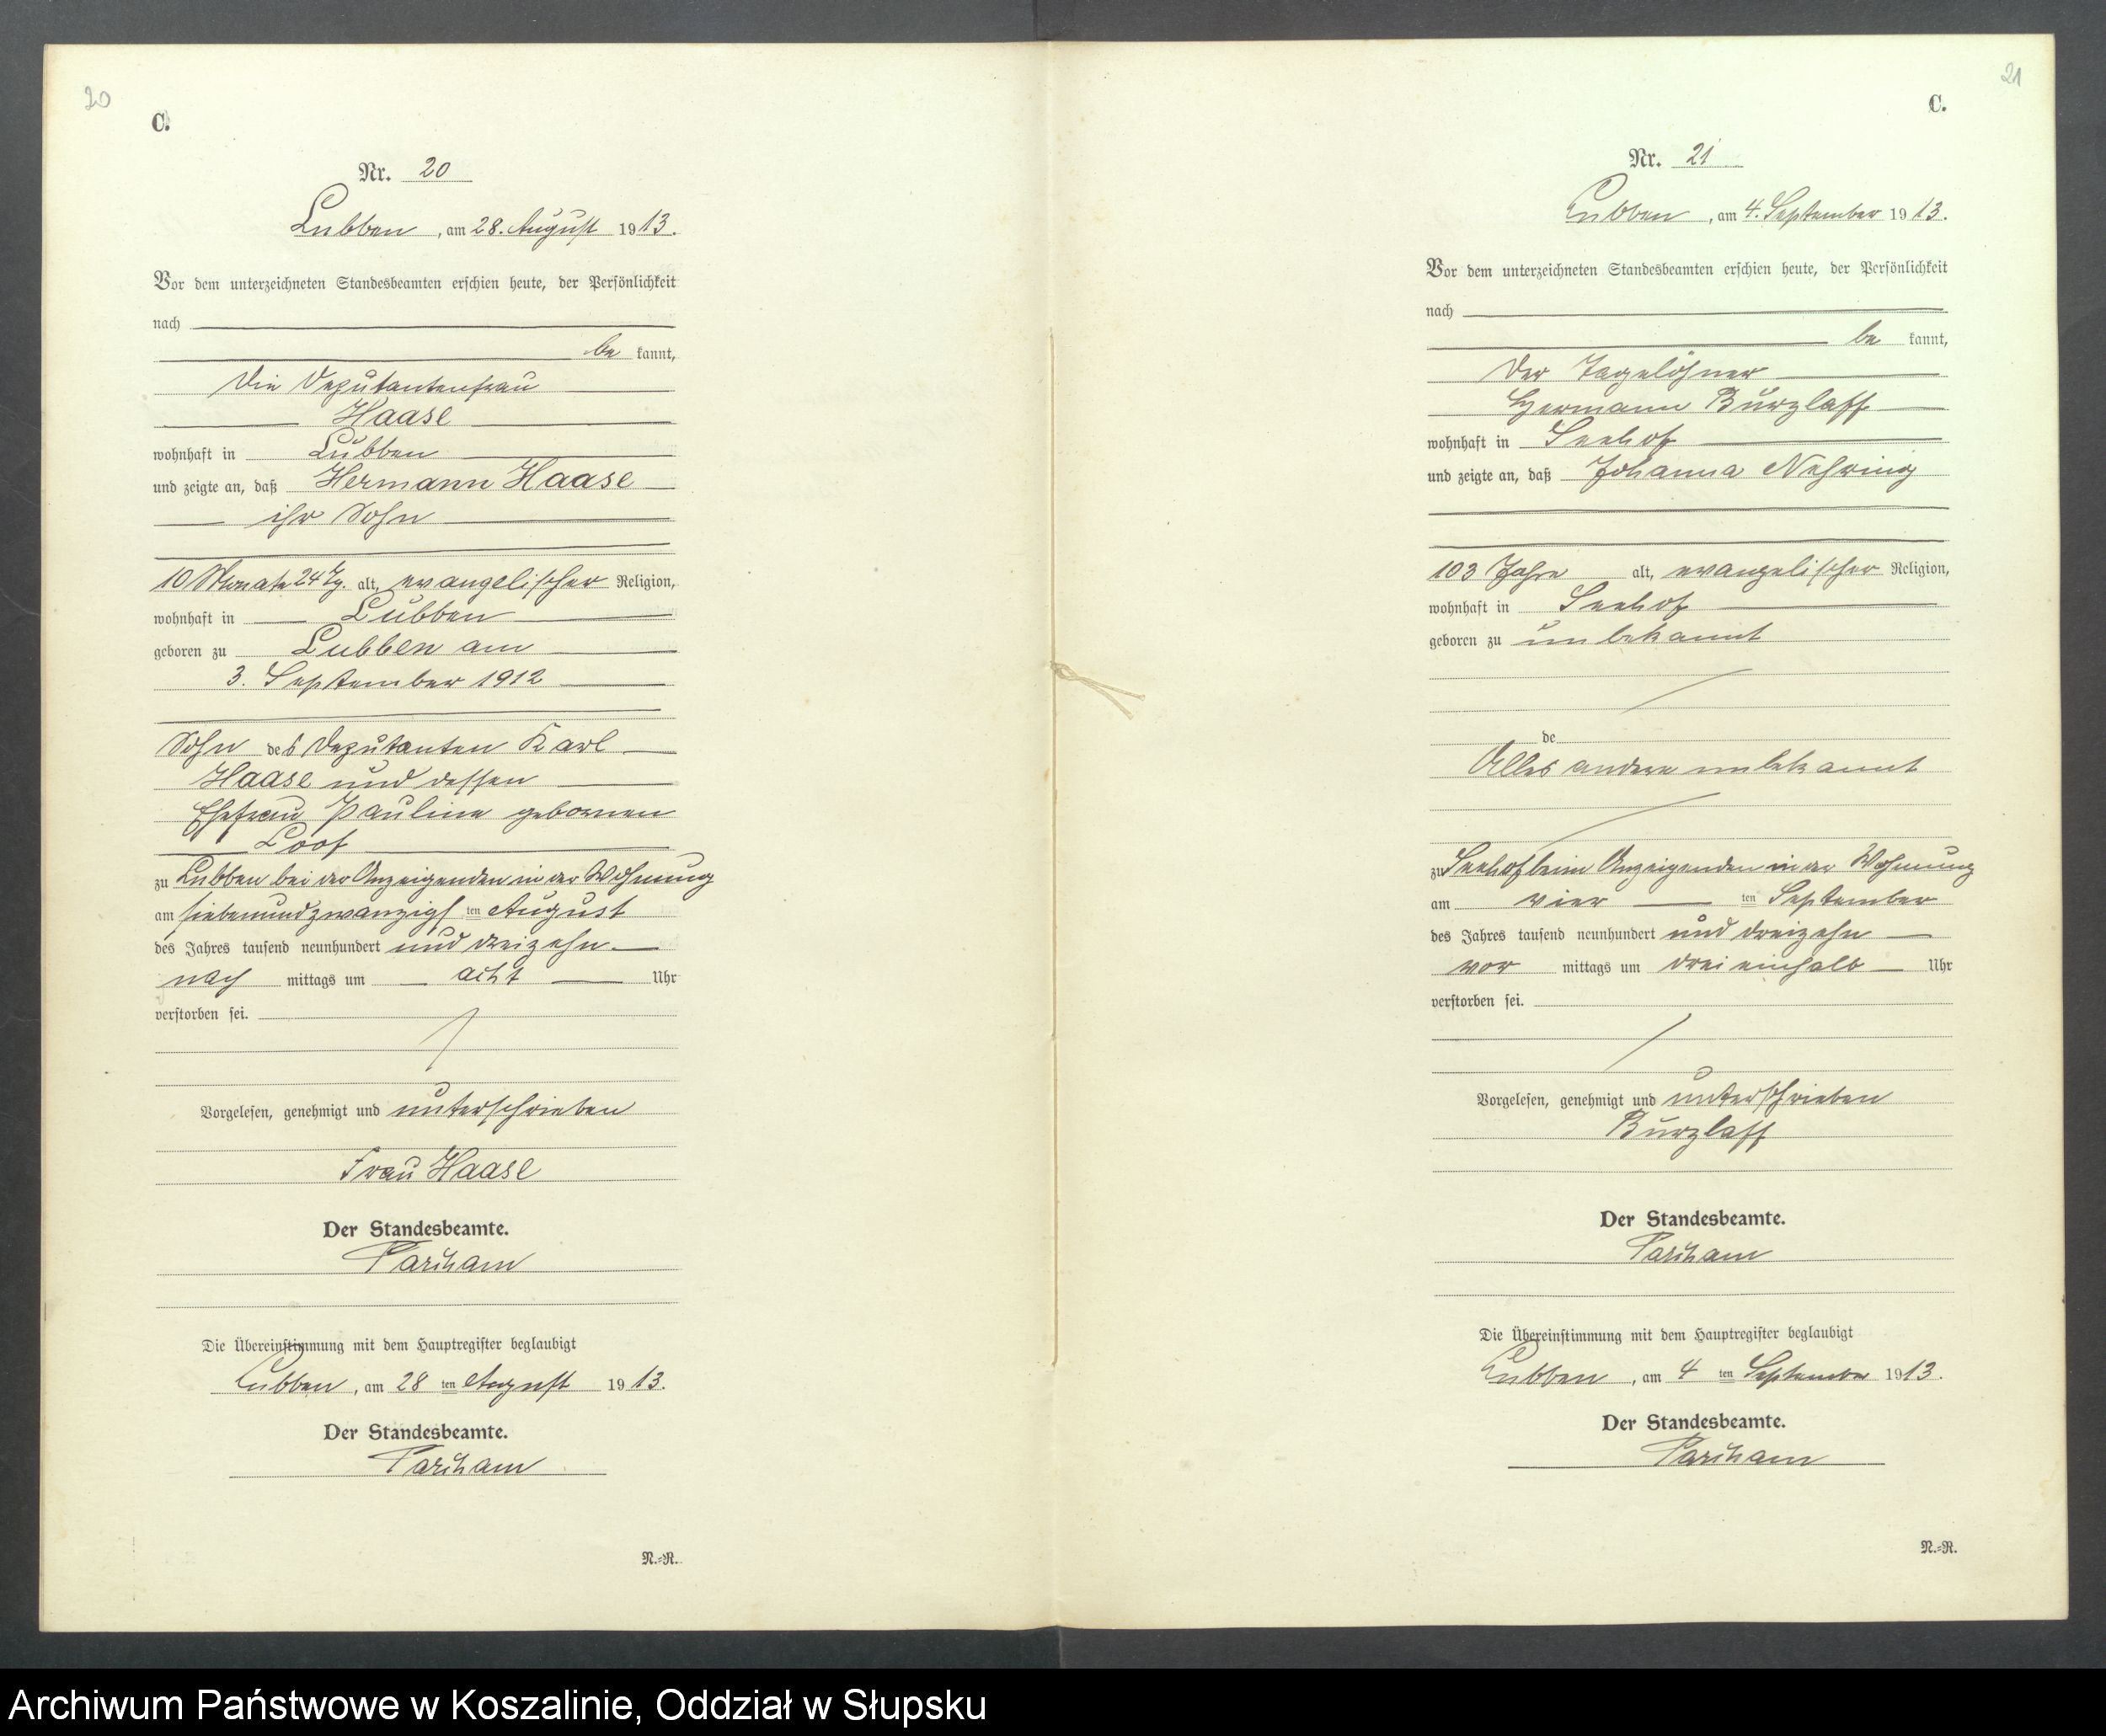 20
C.
Nr. 20
Lubben, am 28. August 1913.
Vor dem unterzeichneten Standesbeamten erschien heute, der Persönlichkeit
nach
be kannt,
die Deputantenfrau
Haase
wohnhaft in Lubben
und zeigte an, daß Hermann Haase
ihr Sohn
10 Monate 24 Tg. alt, evangelischer Religion,
wohnhaft in Lubben
geboren zu Lubben am
3. September 1912
Sohn des Deputanten Karl
Haase und dessen
Ehefrau Pauline gebornen
Loof
zu Lubben bei der Anzeigenden in der Wohnung
am siebenundzwanzigsten August
des Jahres tausend neunhundert und dreizehn
nach mittags um acht Uhr
verstorben sei.
Vorgelesen, genehmigt und unterschrieben
Frau Haase
Der Standesbeamte.
Die Übereinstimmung mit dem Hauptregister beglaubigt
Lubben, am 28 ten August 1913.
Der Standesbeamte.
N.-R.
21
C.
Nr. 21
Lubben, am 4. September 1913.
Vor dem unterzeichneten Standesbeamten erschien heute, der Persönlichkeit
nach
be kannt,
der Tagelöhner
Hermann Burzlaff
wohnhaft in Seehof
und zeigte an, daß Johanna Nehring
103 Jahre alt, evangelischer Religion,
wohnhaft in Seehof
geboren zu unbekannt
de
Alles andere unbekannt
zu Seehof beim Anzeigenden in der Wohnung
am vier ten September
des Jahres tausend neunhundert und dreizehn
vor mittags um drei einhalb Uhr
verstorben sei.
Vorgelesen, genehmigt und unterschrieben
Burzlaff
Der Standesbeamte.
Die Übereinstimmung mit dem Hauptregister beglaubigt
Lubben, am 4 ten September 1913.
Der Standesbeamte.
N.-R.
Archiwum Państwowe w Koszalinie, Oddział w Słupsku